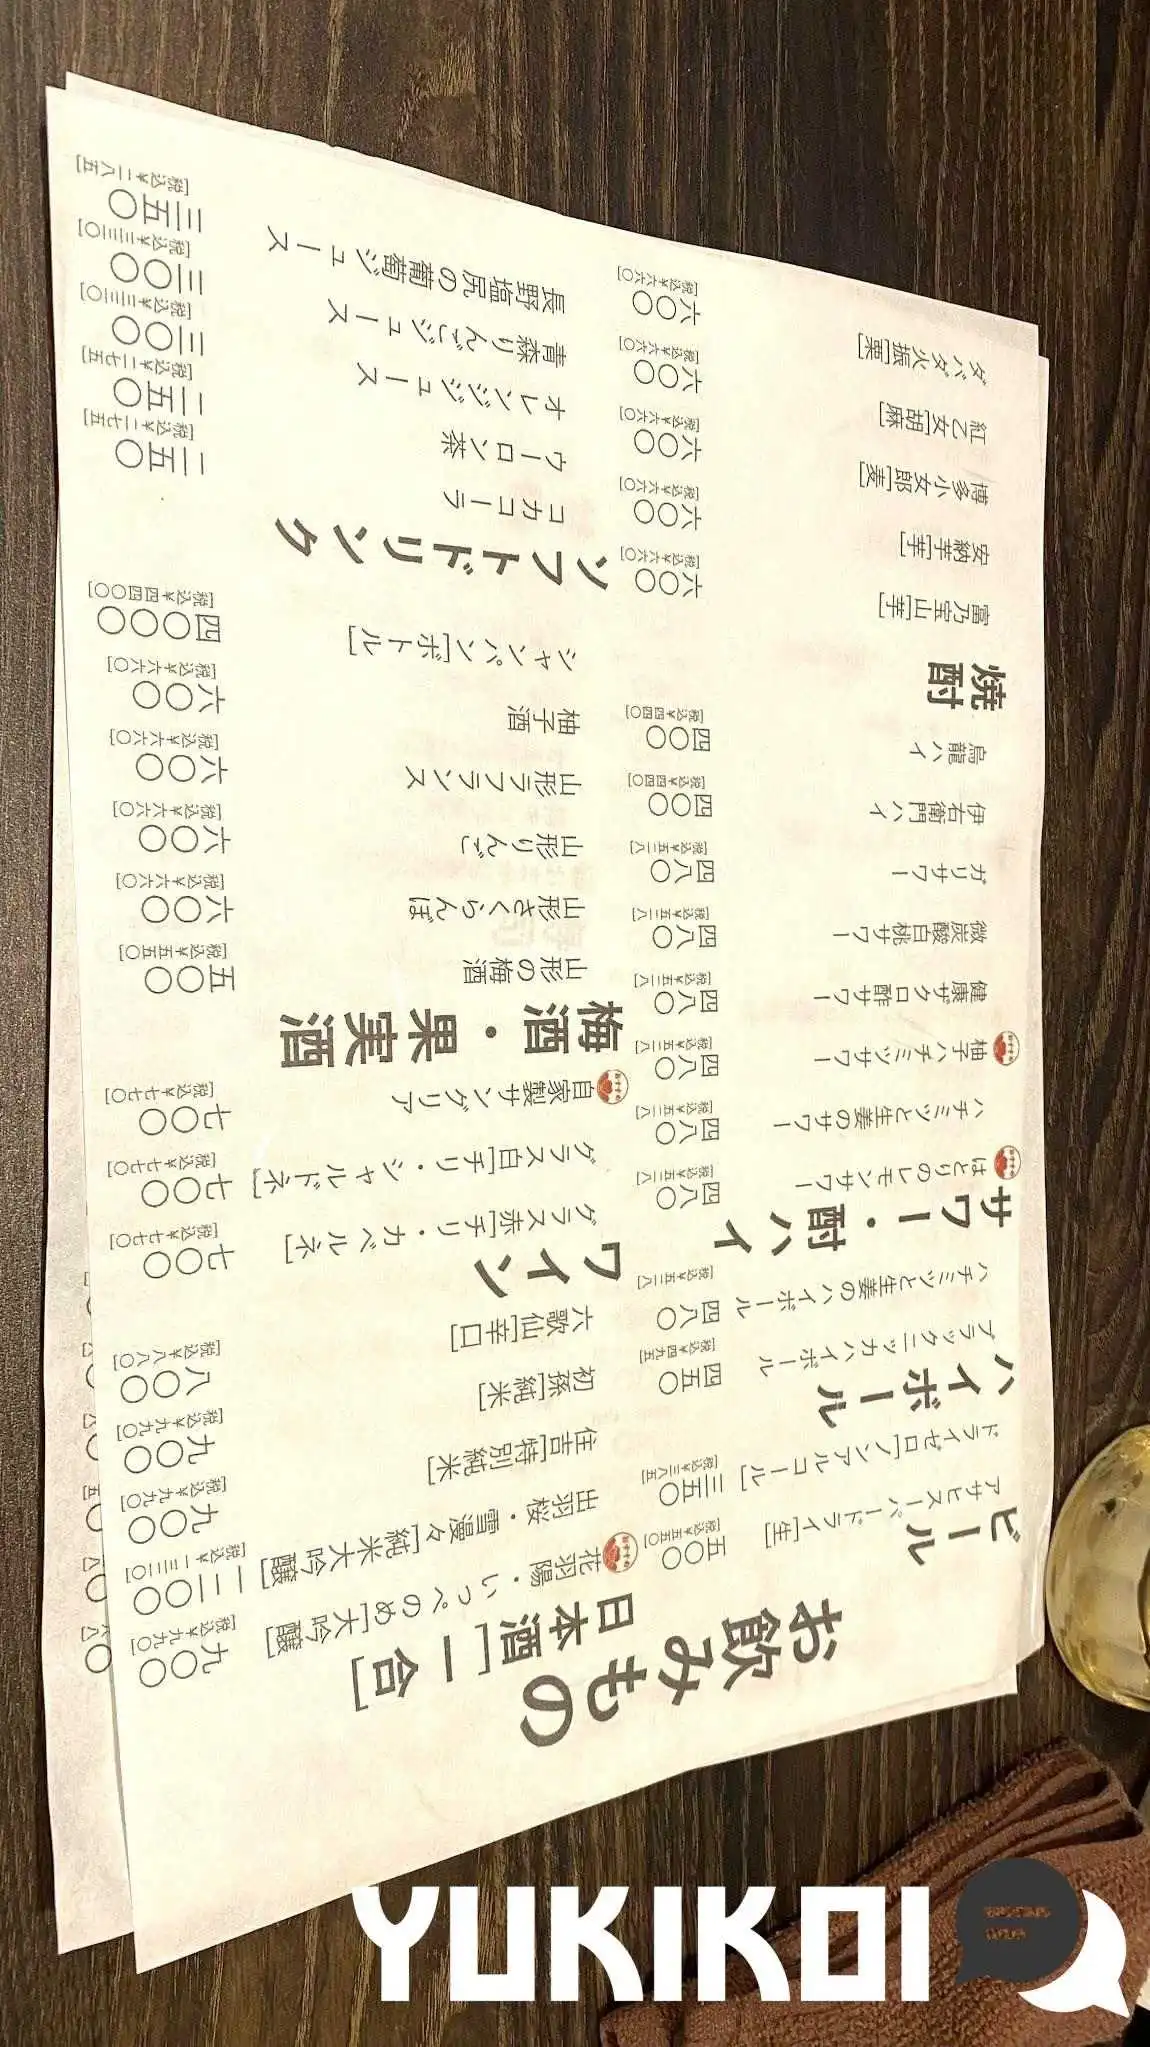 お飲みもの
ビール
アサヒスーパードライ[生]
五〇〇
[税込¥五五〇]
ドライゼロ[ノンアルコール]
三五〇
[税込¥三八五]
ハイボール
ブラックニッカハイボール
四五〇
[税込¥四九五]
ハチミツと生姜のハイボール
四八〇
[税込¥五二八]
サワー・酎ハイ
はとりのレモンサワー
四八〇
[税込¥五二八]
ハチミツと生姜のサワー
四八〇
[税込¥五二八]
柚子ハチミツサワー
四八〇
[税込¥五二八]
健康ザクロ酢サワー
四八〇
[税込¥五二八]
微炭酸白桃サワー
四八〇
[税込¥五二八]
ガリサワー
四八〇
[税込¥五二八]
伊右衛門ハイ
四〇〇
[税込¥四四〇]
烏龍ハイ
四〇〇
[税込¥四四〇]
焼酎
富乃宝山[芋]
六〇〇
[税込¥六六〇]
安納芋[芋]
六〇〇
[税込¥六六〇]
博多小女郎[麦]
六〇〇
[税込¥六六〇]
紅乙女[胡麻]
六〇〇
[税込¥六六〇]
ダバダ火振[栗]
六〇〇
[税込¥六六〇]
日本酒[一合]
花羽陽・いっぺのめ[大吟醸]
九〇〇
[税込¥九九〇]
出羽桜・雪漫々[純米大吟醸]
一二〇〇
[税込¥一三二〇]
住吉[特別純米]
九〇〇
[税込¥九九〇]
初孫[純米]
九〇〇
[税込¥九九〇]
六歌仙[辛口]
八〇〇
[税込¥八八〇]
ワイン
グラス赤[チリ・カベルネ]
七〇〇
[税込¥七七〇]
グラス白[チリ・シャルドネ]
七〇〇
[税込¥七七〇]
自家製サングリア
七〇〇
[税込¥七七〇]
梅酒・果実酒
山形の梅酒
五〇〇
[税込¥五五〇]
山形さくらんぼ
六〇〇
[税込¥六六〇]
山形りんご
六〇〇
[税込¥六六〇]
山形ラフランス
六〇〇
[税込¥六六〇]
柚子酒
六〇〇
[税込¥六六〇]
シャンパン[ボトル]
四〇〇〇
[税込¥四四〇〇]
ソフトドリンク
コカコーラ
二五〇
[税込¥二七五]
ウーロン茶
二五〇
[税込¥二七五]
オレンジジュース
三〇〇
[税込¥三三〇]
青森りんごジュース
三〇〇
[税込¥三三〇]
長野塩尻の葡萄ジュース
三五〇
YUKIKOI